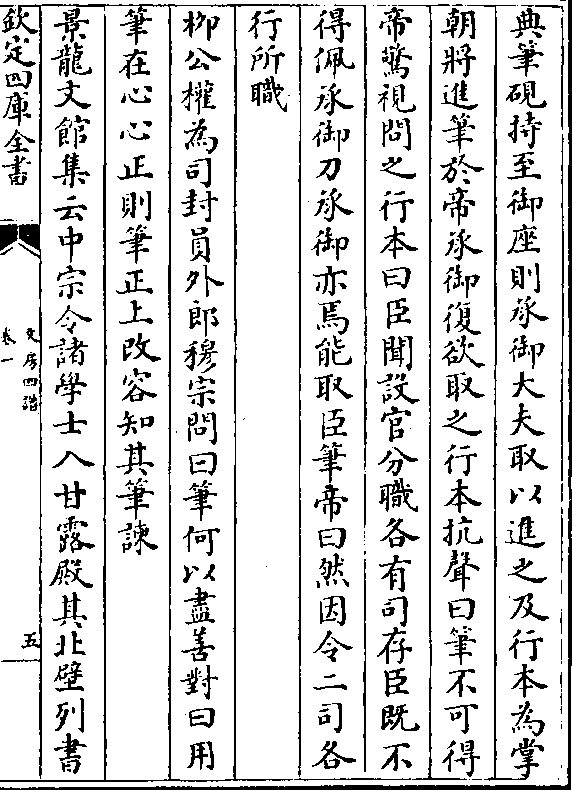 典筆硯持至御座則承御大夫取以進之及行本為掌
朝將進筆於帝承御復欲取之行本抗聲曰筆不可得
帝驚視問之行本曰臣聞設官分職各有司存臣既不
得佩承御刀承御亦焉能取臣筆帝曰然因令二司各
行所職
柳公權為司封員外郎穆宗問曰筆何以盡善對曰用
筆在心心正則筆正上改容知其筆諫
景龍文館集云中宗令諸學士入甘露殿其北壁列書
欽定四庫全書
文房四譜
卷一
五